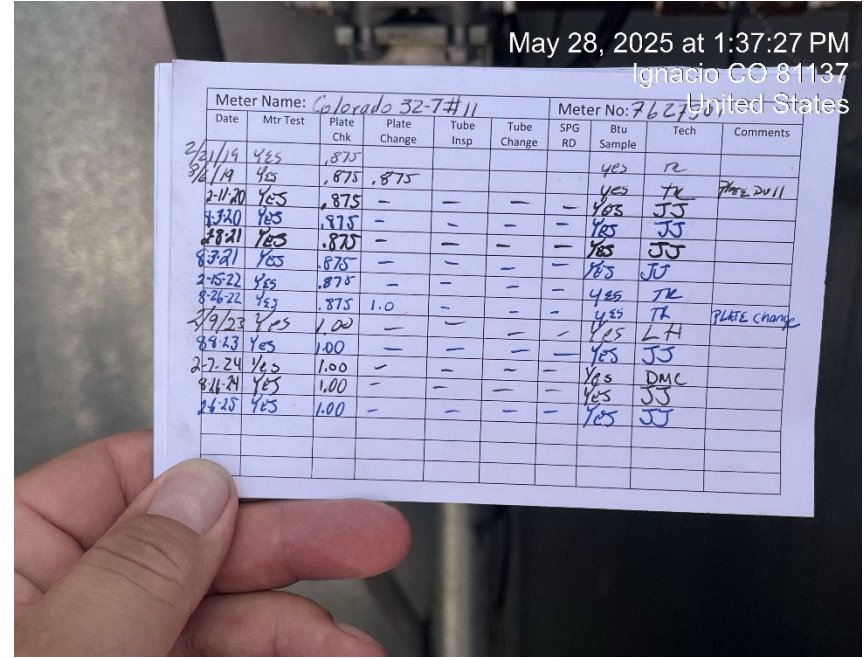 May 28, 2025 at 1:37:27 PM
Ignacio CO 81137
United States
Meter Name: Colorado 32-7 #11 Meter No:
Date Mtr Test Plate Chk Plate Change Tube Insp Tube Change SPG RD Btu Sample Tech Comments
2/21/19 YES .875 yes TR
8/6/19 Yes .875 .875 yes TR Plate Dull
2-11-20 YES .875 – – – – YES JJ
8-3-20 YES .875 – – – – YES JJ
2-8-21 YES .875 – – – – YES JJ
8-3-21 YES .875 – – – – YES JJ
2-15-22 YES .875 – – – – YES TR
8-26-22 YES .875 1.0 – – – YES TR PLATE Change
2/9/23 Yes 1.00 – – – YES LH
8-8-23 YES 1.00 – – – – YES JJ
2-7-24 Yes 1.00 – – – – Yes DMC
YES 1.00 – – – – YES JJ
2-6-25 YES 1.00 – – – – YES JJ